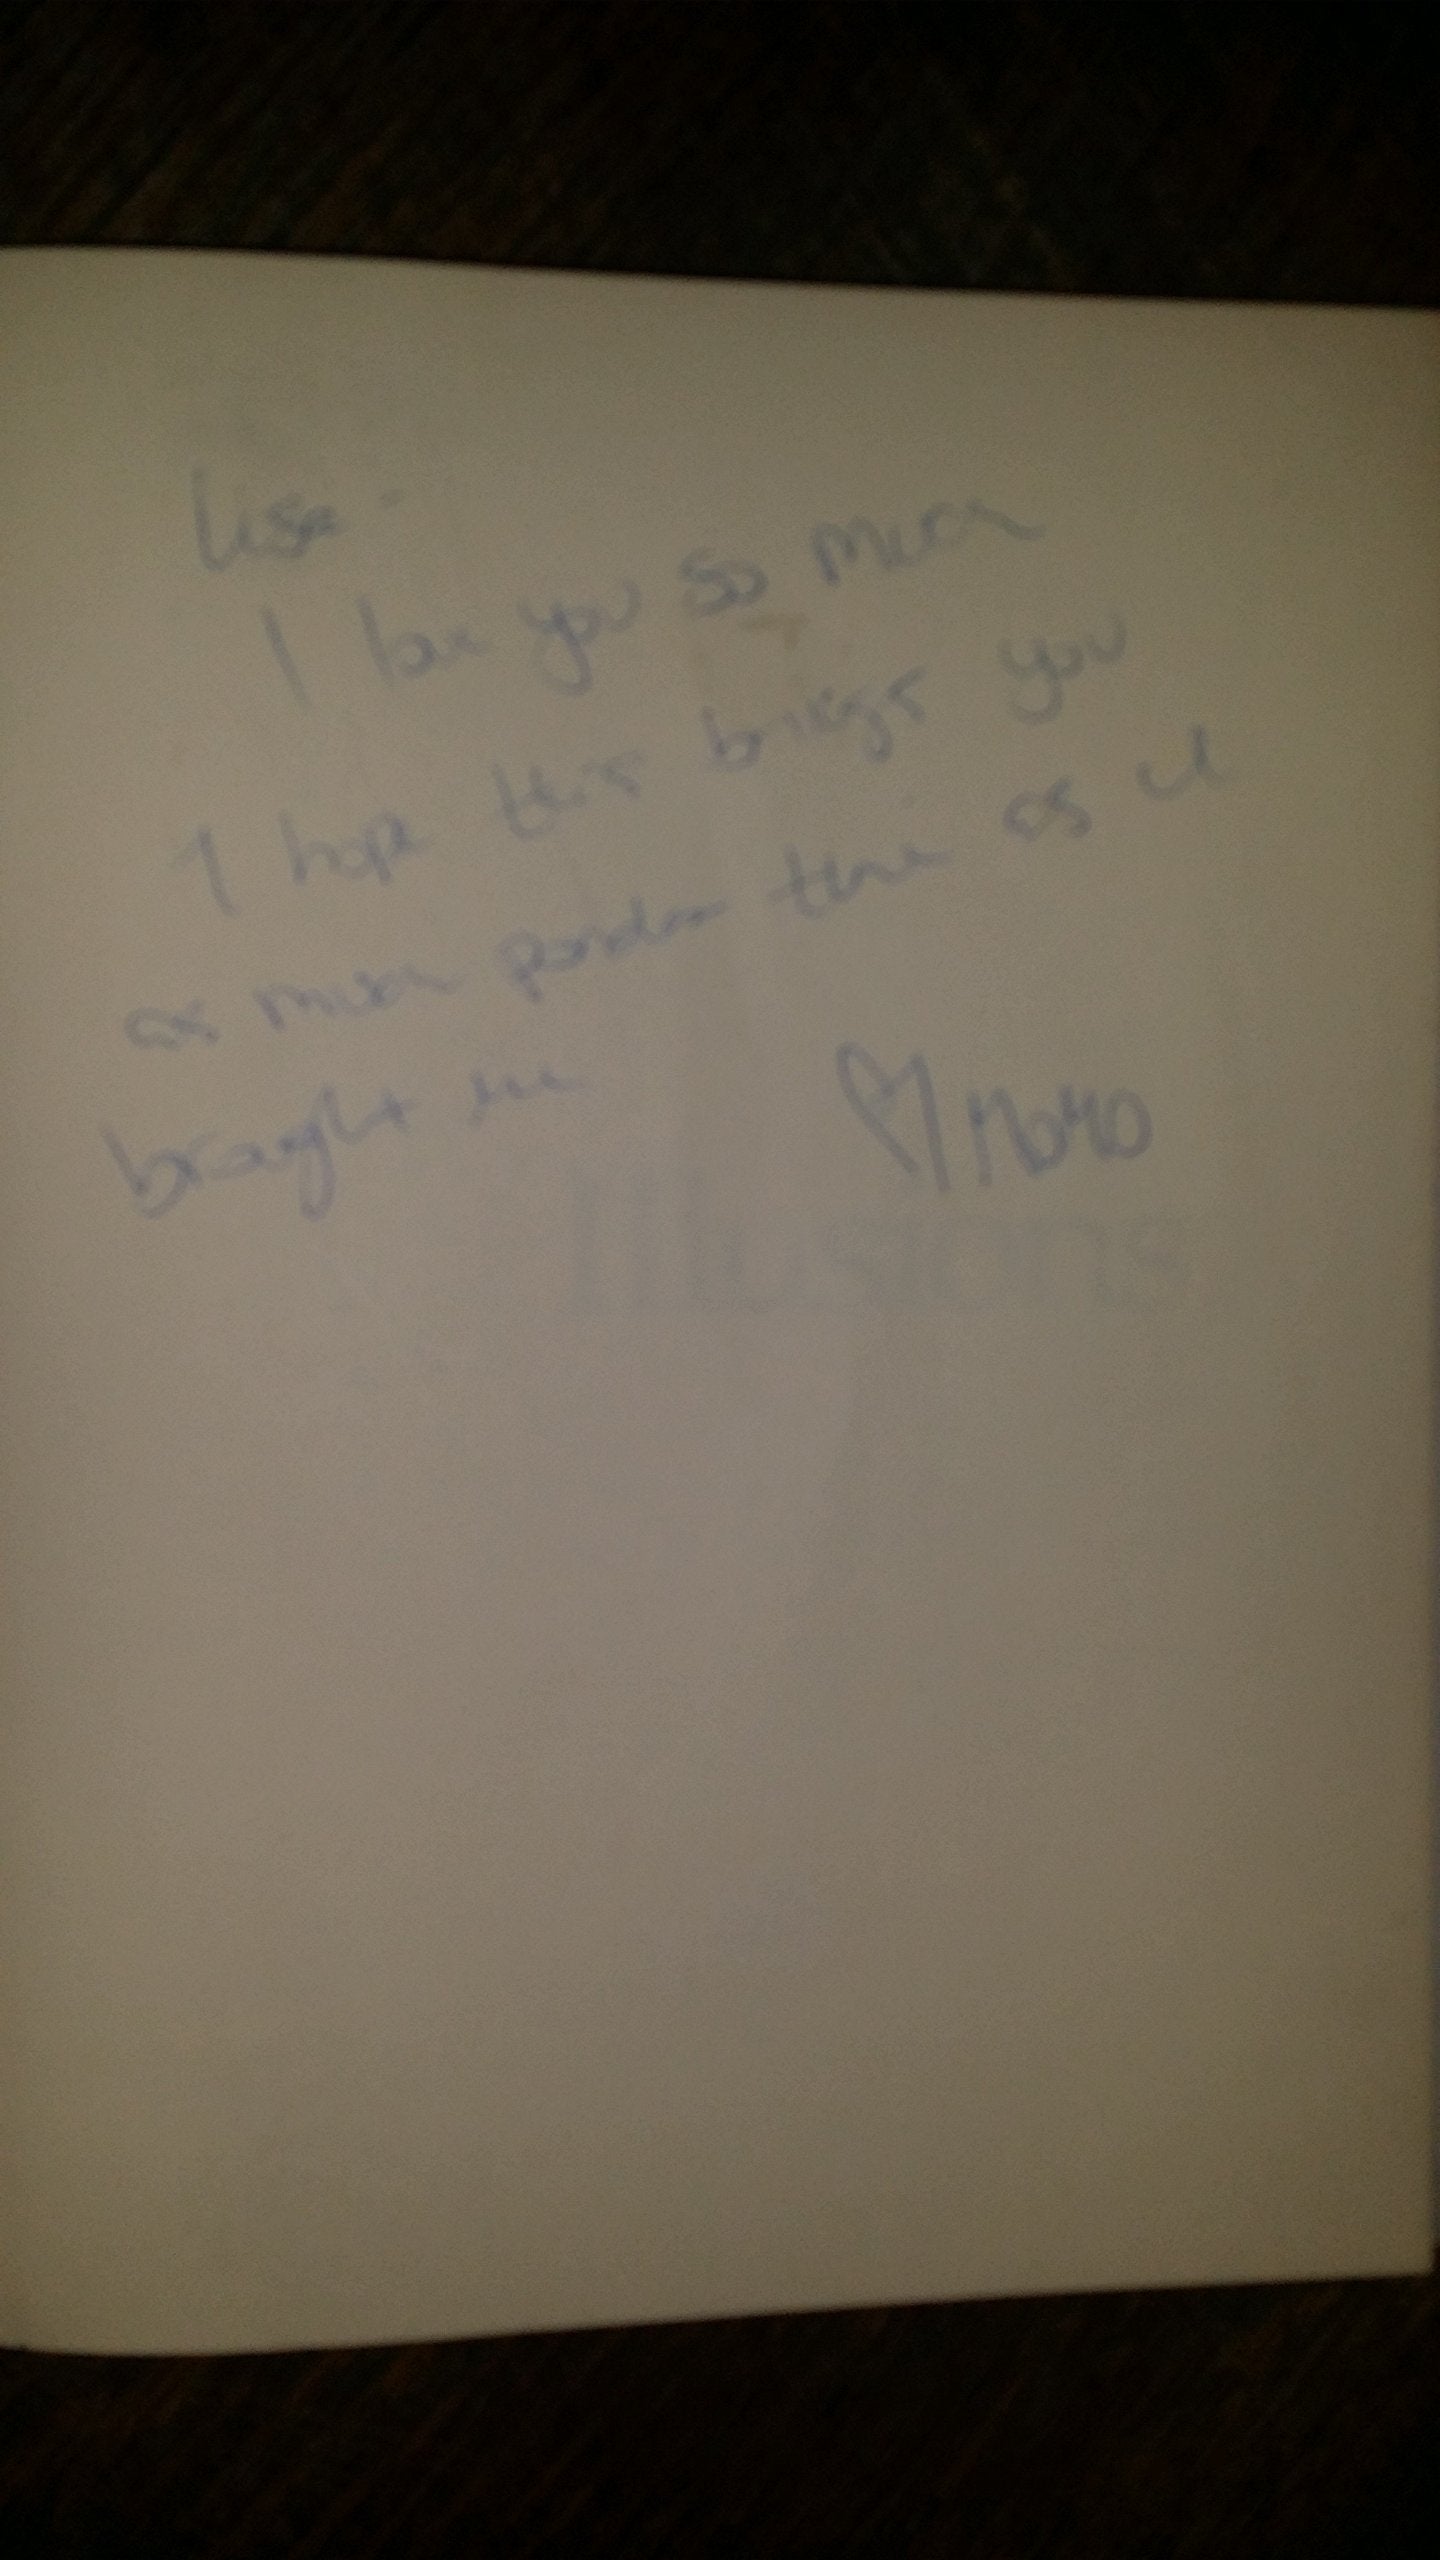 Lisa -
I love you so much
I hope this brings you
as much ponder time as it
brought me
♡ MoMo